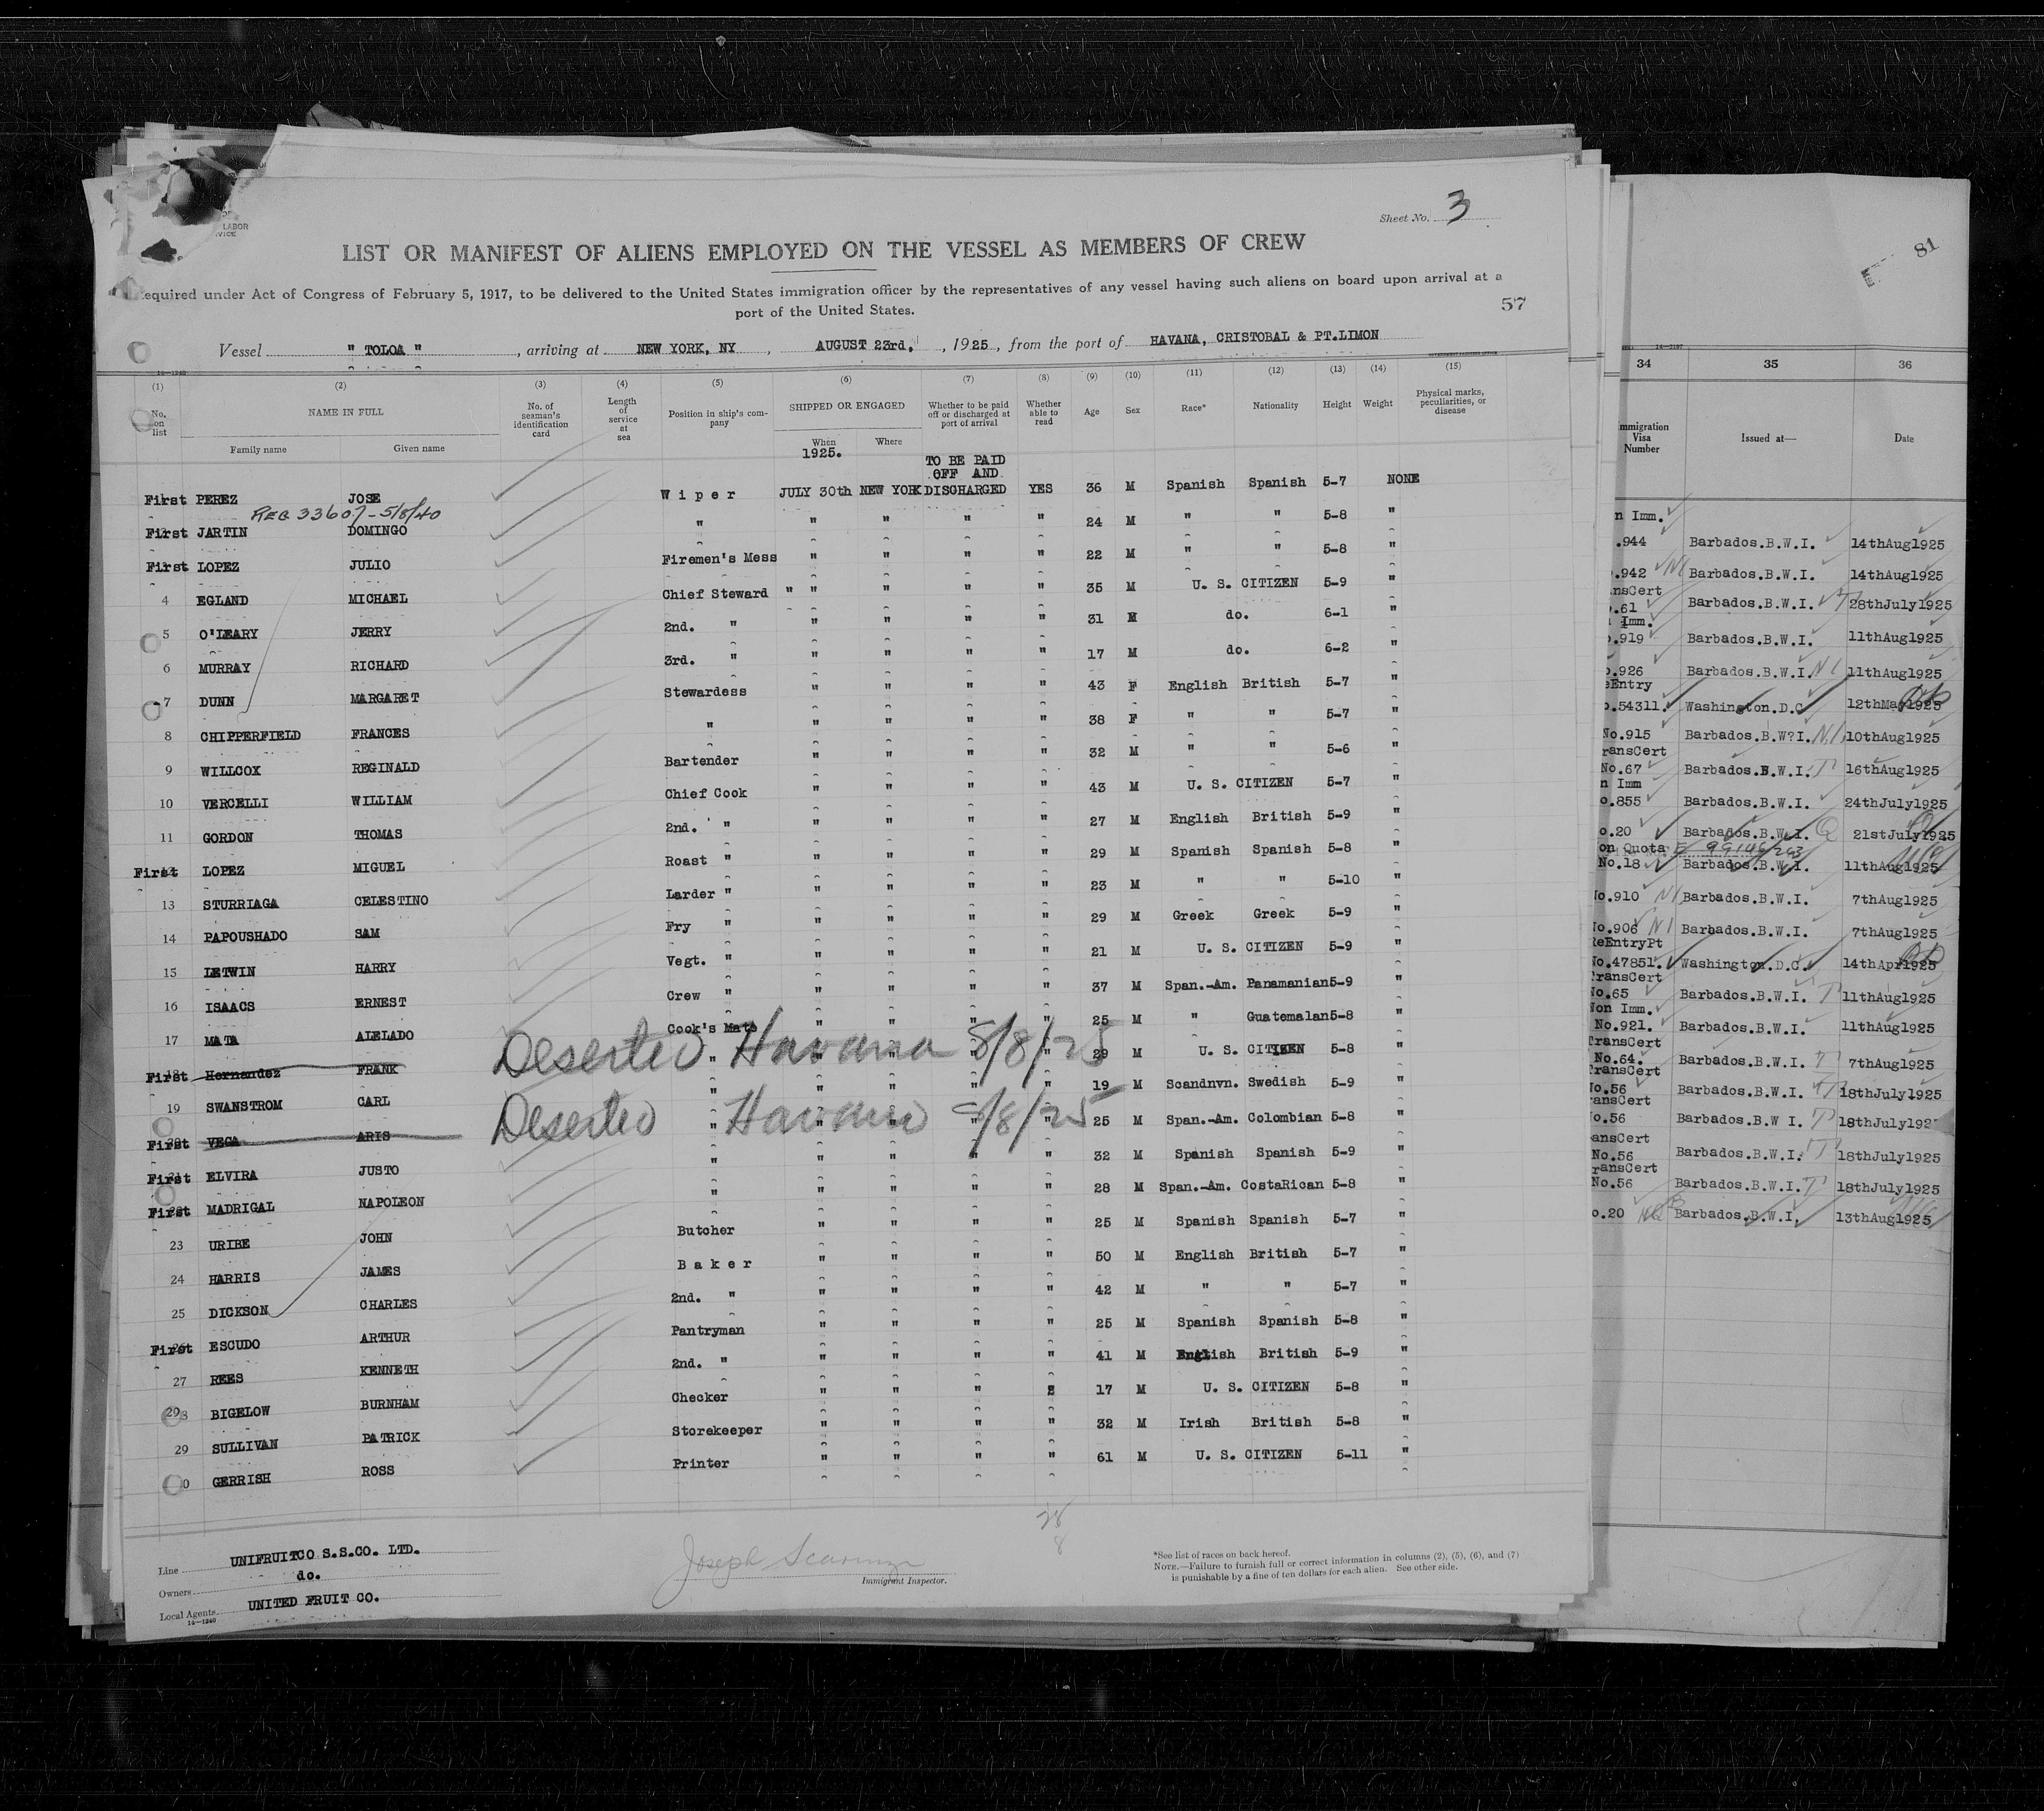 LABOR
VICE
Sheet No. 3
LIST OR MANIFEST OF ALIENS EMPLOYED ON THE VESSEL AS MEMBERS OF CREW
equired under Act of Congress of February 5, 1917, to be delivered to the United States immigration officer by the representatives of any vessel having such aliens on board upon arrival at a
port of the United States.
57
Vessel " TOLOA " , arriving at NEW YORK, NY , AUGUST 23rd. , 1925 , from the port of HAVANA, CRISTOBAL & PT.LIMON
14—1240
(1) (2) (3) (4) (5) (6) (7) (8) (9) (10) (11) (12) (13) (14) (15)
No. on list NAME IN FULL Family name Given name No. of seaman's identification card Length of service at sea Position in ship's company SHIPPED OR ENGAGED When Where Whether to be paid off or discharged at port of arrival Whether able to read Age Sex Race* Nationality Height Weight Physical marks, peculiarities, or disease
1925.
TO BE PAID
OFF AND
First PEREZ JOSE Wiper JULY 30th NEW YORK DISCHARGED YES 36 M Spanish Spanish 5-7 NONE
REG 33607-5/8/40
First JARTIN DOMINGO " " " " " 24 M " " 5-8 "
First LOPEZ JULIO Firemen's Mess " " " " 22 M " " 5-8 "
4 EGLAND MICHAEL Chief Steward " " " " " 35 M U. S. CITIZEN 5-9 "
5 O'LEARY JERRY 2nd. " " " " " 31 M do. 6-1 "
6 MURRAY RICHARD 3rd. " " " " " 17 M do. 6-2 "
7 DUNN MARGARET Stewardess " " " " 43 F English British 5-7 "
8 CHIPPERFIELD FRANCES " " " " " 38 F " " 5-7 "
9 WILLCOX REGINALD Bartender " " " " 32 M " " 5-6 "
10 VERCELLI WILLIAM Chief Cook " " " " 43 M U. S. CITIZEN 5-7 "
11 GORDON THOMAS 2nd. " " " " " 27 M English British 5-9 "
First LOPEZ MIGUEL Roast " " " " " 29 M Spanish Spanish 5-8 "
13 STURRIAGA CELESTINO Larder " " " " " 23 M " " 5-10 "
14 PAPOUSHADO SAM Fry " " " " " 29 M Greek Greek 5-9 "
15 LETWIN HARRY Vegt. " " " " " 21 M U. S. CITIZEN 5-9 "
16 ISAACS ERNEST Crew " " " " " 37 M Span.-Am. Panamanian 5-9 "
17 MATA ALELADO Cook's Mate " " " " 25 M " Guatemalan 5-8 "
First Hernandez FRANK Deserted Havana 8/8/25 " " " " " 29 M U. S. CITIZEN 5-8 "
19 SWANSTROM CARL " " " " " 19 M Scandnvn. Swedish 5-9 "
First VEGA ARIS Deserted Havana 8/8/25 " " " " " 25 M Span.-Am. Colombian 5-8 "
First ELVIRA JUSTO " " " " " 32 M Spanish Spanish 5-9 "
First MADRIGAL NAPOLEON " " " " " 28 M Span.-Am. CostaRican 5-8 "
23 URIBE JOHN Butcher " " " " 25 M Spanish Spanish 5-7 "
24 HARRIS JAMES Baker " " " " 50 M English British 5-7 "
25 DICKSON CHARLES 2nd. " " " " " 42 M " " 5-7 "
First ESCUDO ARTHUR Pantryman " " " " 25 M Spanish Spanish 5-8 "
27 REES KENNETH 2nd. " " " " " 41 M English British 5-9 "
BIGELOW BURNHAM Checker " " " 17 M U. S. CITIZEN 5-8 "
29 SULLIVAN PATRICK Storekeeper " " " " 32 M Irish British 5-8 "
0 GERRISH ROSS Printer " " " " 61 M U. S. CITIZEN 5-11 "
28
8
Line UNIFRUITCO S.S.CO. LTD.
Owners do.
Local Agents UNITED FRUIT CO.
14—1240
Joseph
Immigrant Inspector.
*See list of races on back hereof.
NOTE.—Failure to furnish full or correct information in columns (2), (5), (6), and (7)
is punishable by a fine of ten dollars for each alien. See other side.
81
34 35 36
mmigration Visa Number Issued at— Date
n Imm.
.944 Barbados.B.W.I. 14thAug1925
.942 NI Barbados.B.W.I. 14thAug1925
nsCert
.61 Barbados.B.W.I. T 28thJuly1925
Imm.
.919 Barbados.B.W.I. 11thAug1925
.926 Barbados.B.W.I. NI 11thAug1925
eEntry
.54311. Washington.D.C. 12thMar1925
No.915 Barbados.B.W?I. N.I. 10thAug1925
ransCert
No.67 Barbados.B.W.I. T 16thAug1925
n Imm
o.855 Barbados.B.W.I. 24thJuly1925
o.20 Barbados.B.W.I. Q 21stJuly1925
on Quota
No.18 Barbados.B.W.I. 11thAug1925
No.910 NI Barbados.B.W.I. 7thAug1925
No.906 NI Barbados.B.W.I. 7thAug1925
ReEntryPt
No.47851. Washington.D.C. 14thApr1925
TransCert
No.65 Barbados.B.W.I. T 11thAug1925
Non Imm.
No.921. Barbados.B.W.I. 11thAug1925
TransCert
No.64. Barbados.B.W.I. T 7thAug1925
TransCert
No.56 Barbados.B.W.I. T 18thJuly1925
ansCert
No.56 Barbados.B.W I. T 18thJuly192
ansCert
No.56 Barbados.B.W.I. T 18thJuly1925
ransCert
No.56 Barbados.B.W.I. T 18thJuly1925
o.20 Barbados.B.W.I. 13thAug1925